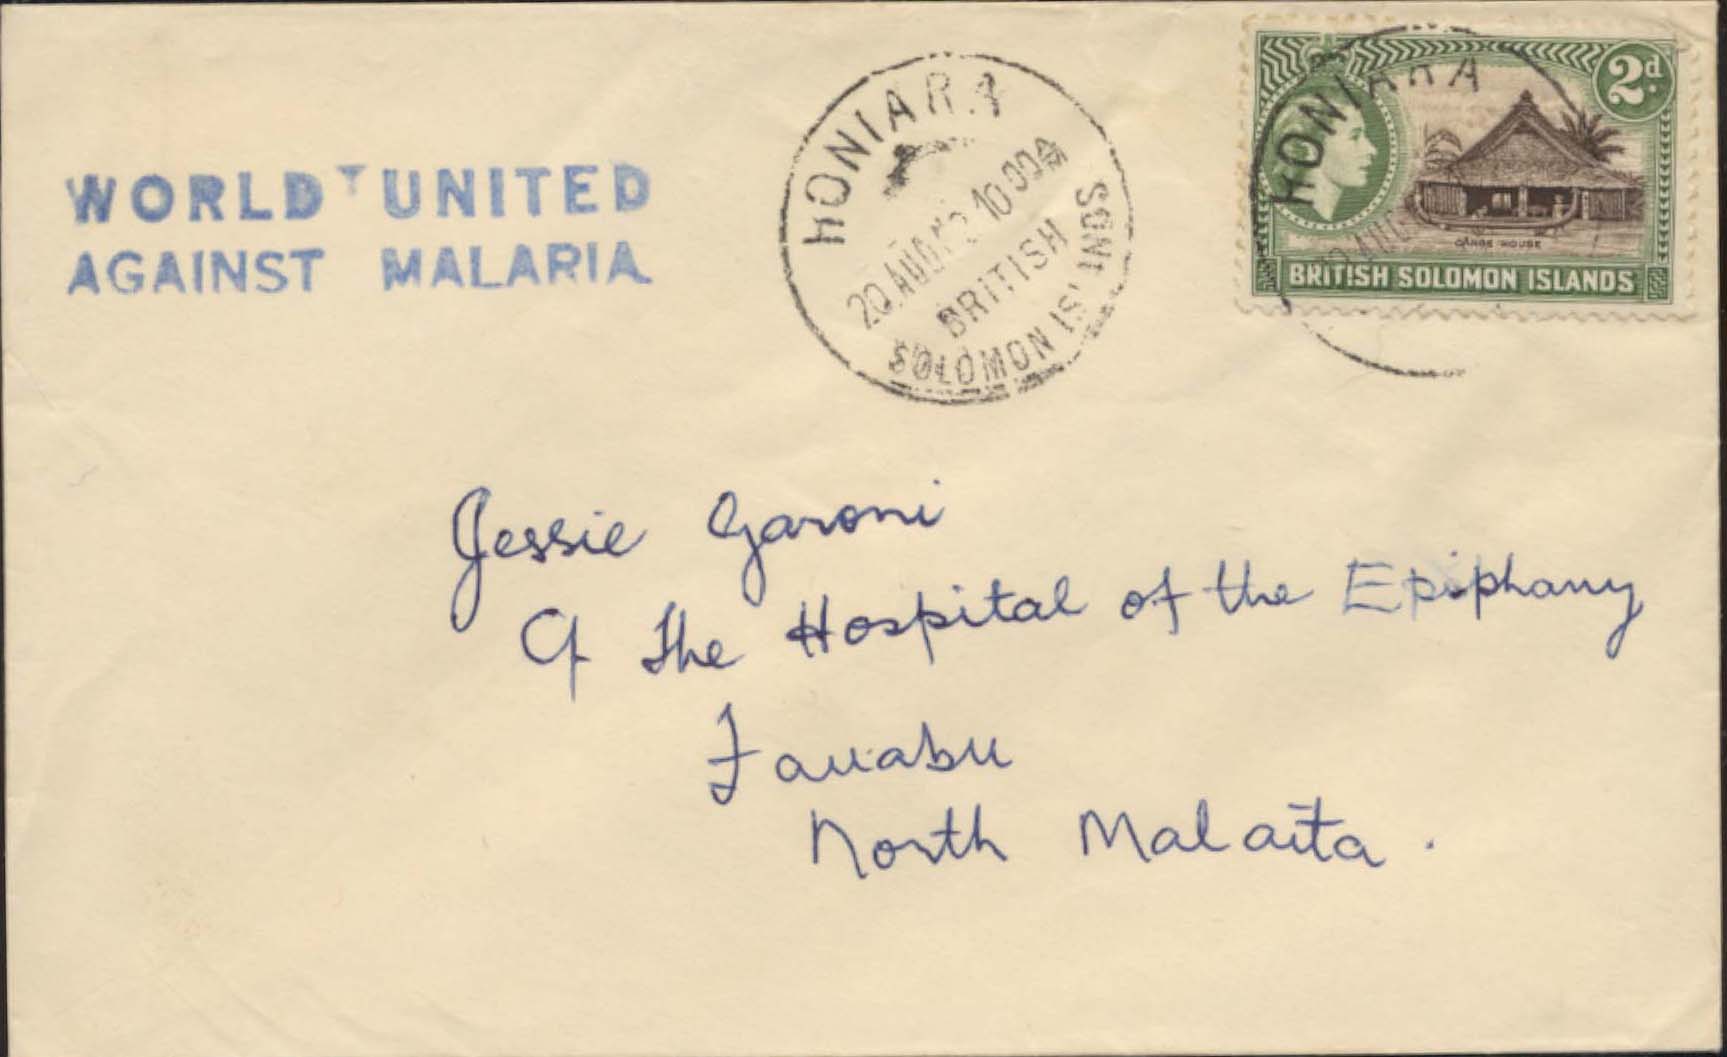 WORLD UNITED
AGAINST MALARIA
HONIARA
10.00A
BRITISH
SOLOMON IS
HONIARA
2d.
CANOE HOUSE
BRITISH SOLOMON ISLANDS
Jessie Garoni
C/- The Hospital of the Epiphany
Fauabu
North Malaita.